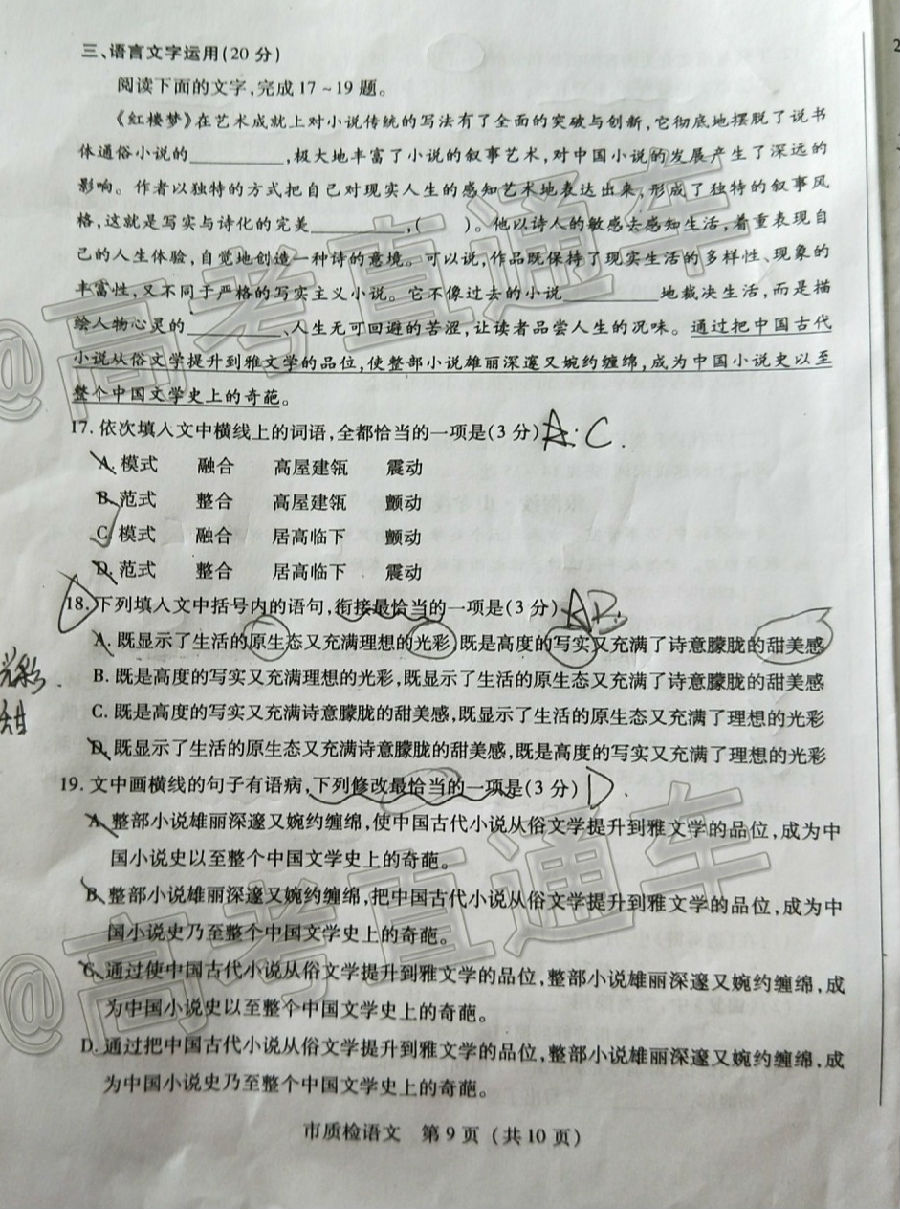 三、语言文字运用(20分)
阅读下面的文字,完成17~19题。
《红楼梦》在艺术成就上对小说传统的写法有了全面的突破与创新,它彻底地摆脱了说书
体通俗小说的________,极大地丰富了小说的叙事艺术,对中国小说的发展产生了深远的
影响。作者以独特的方式把自己对现实人生的感知艺术地表达出来,形成了独特的叙事风
格,这就是写实与诗化的完美________,( )。他以诗人的敏感去感知生活,着重表现自
己的人生体验,自觉地创造一种诗的意境。可以说,作品既保持了现实生活的多样性、现象的
丰富性,又不同于严格的写实主义小说。它不像过去的小说________地裁决生活,而是描
绘人物心灵的________、人生无可回避的苦涩,让读者品尝人生的况味。通过把中国古代
小说从俗文学提升到雅文学的品位,使整部小说雄丽深邃又婉约缠绵,成为中国小说史以至
整个中国文学史上的奇葩。
17.依次填入文中横线上的词语,全都恰当的一项是(3分) A:C.
A.模式 融合 高屋建瓴 震动
B.范式 整合 高屋建瓴 颤动
C.模式 融合 居高临下 颤动
D.范式 整合 居高临下 震动
18.下列填入文中括号内的语句,衔接最恰当的一项是(3分)
A.既显示了生活的原生态又充满理想的光彩,既是高度的写实又充满了诗意朦胧的甜美感
B.既是高度的写实又充满理想的光彩,既显示了生活的原生态又充满了诗意朦胧的甜美感
C.既是高度的写实又充满诗意朦胧的甜美感,既显示了生活的原生态又充满了理想的光彩
D.既显示了生活的原生态又充满诗意朦胧的甜美感,既是高度的写实又充满了理想的光彩
光彩
甜
19.文中画横线的句子有语病,下列修改最恰当的一项是(3分) D
A.整部小说雄丽深邃又婉约缠绵,使中国古代小说从俗文学提升到雅文学的品位,成为中
国小说史以至整个中国文学史上的奇葩。
B.整部小说雄丽深邃又婉约缠绵,把中国古代小说从俗文学提升到雅文学的品位,成为中
国小说史乃至整个中国文学史上的奇葩。
C.通过使中国古代小说从俗文学提升到雅文学的品位,整部小说雄丽深邃又婉约缠绵,成
为中国小说史以至整个中国文学史上的奇葩。
D.通过把中国古代小说从俗文学提升到雅文学的品位,整部小说雄丽深邃又婉约缠绵,成
为中国小说史乃至整个中国文学史上的奇葩。
市质检语文 第9页(共10页)
@高考直通车
@高考直通车
2